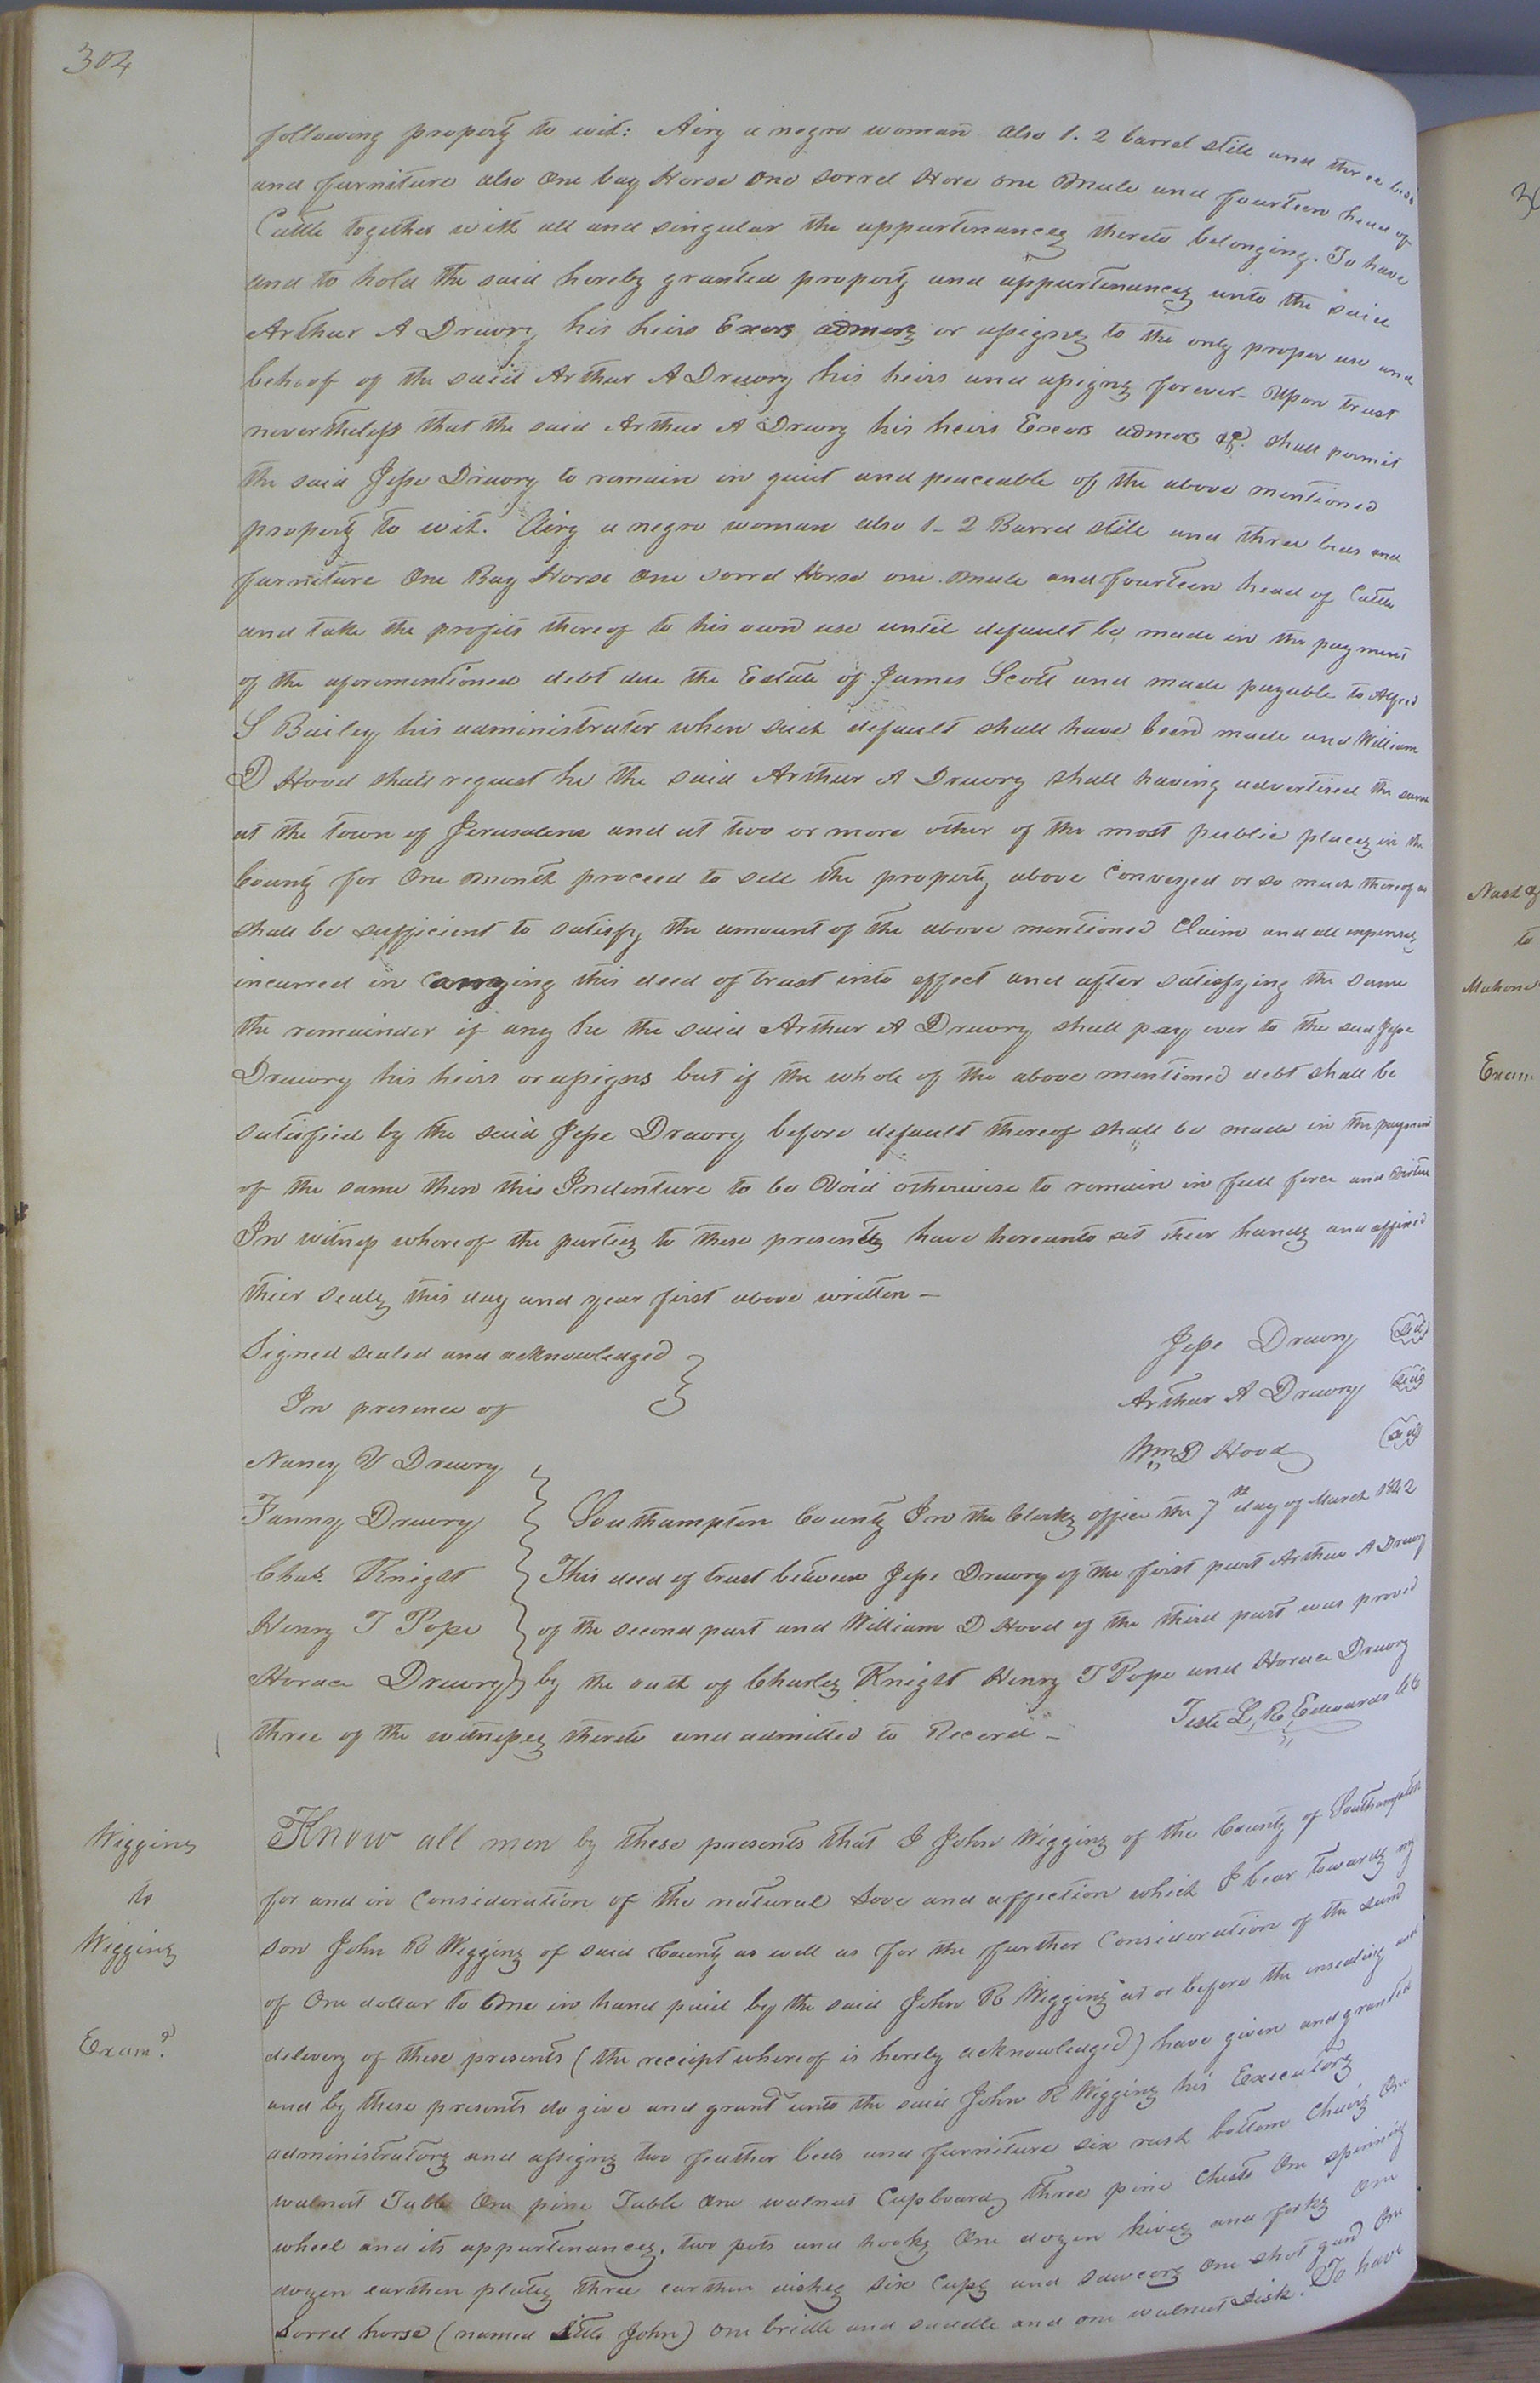 304
following property to wit: Airy a negro woman also 1. 2 barrel still and three beds
and furniture also One bay Horse One sorrel Hors one Mule and fourteen head of
Cattle together with all and singular the appurtenances thereto belonging. To have
and to hold the said hereby granted property and appurtenances unto the said
Arthur A Drewry his heirs Exors admors or assigns to the only proper use and
behoof of the said Arthur A Drewry his heirs and assigns forever - Upon trust
nevertheless that the said Arthur A Drewry his heirs Exors admors &c. shall permit
the said Jesse Drewry to remain in quiet and peaceable of the above mentioned
property to wit. Airy a negro woman also 1 - 2 Barrel still and three beds and
furniture One Bay Horse One sorrel Horse one Mule and fourteen head of Cattle
and take the profits thereof to his own use until default be made in the payment
of the aforementioned debt due the Estate of James Scott and made payable to Alfred
S Bailey his administrator when such default shall have been made and William
D Hood shall request he the said Arthur A Drewry shall having advertised the same
at the town of Jerusalem and at two or more other of the most public places in the
County for One Month proceed to sell the property above Conveyed or so much thereof as
shall be sufficient to satisfy the amount of the above mentioned Claim and all expenses
incurred in Carrying this deed of trust into effect and after satisfying the same
the remainder if any he the said Arthur A Drewry shall pay over to the said Jesse
Drewry his heirs or assigns but if the whole of the above mentioned debt shall be
satisfied by the said Jesse Drewry before default thereof shall be made in the payment
of the same then this Indenture to be Void otherwise to remain in full force and virtue
In witness whereof the parties to these presents have hereunto set their hands and affixed
their seals this day and year first above written -
Signed sealed and acknowledged } Jesse Drewry (seal)
In presence of Arthur A Drewry (seal)
Nancy V Drewry } Wm D Hood (seal)
Fanny Drewry } Southampton County In the Clerks office the 7th day of March 1842
Chas. Knight } This deed of trust between Jesse Drewry of the first part Arthur A Drewry
Henry T Pope } of the second part and William D Hood of the third part was proved
Horace Drewry } by the oath of Charles Knight Henry T Pope and Horace Drewry
three of the witnesses thereto and admitted to Record - Teste L, R, Edwards CC
Wiggins
to
Wiggins
Examd.
Know all men by these presents that I John Wiggins of the County of Southampton
for and in Consideration of the natural Love and affection which I bear towards my
son John R Wiggins of said County as well as for the further Consideration of the sum
of One dollar to me in hand paid by the said John R Wiggins at or before the ensealing and
delivery of these presents (the receipt whereof is hereby acknowledged) have given and granted
and by these presents do give and grant unto the said John R Wiggins his Executors
administrators and assigns two feather beds and furniture six rush bottom Chairs One
walnut Table One pine Table One walnut Cupboard, three pine Chests One spinning
wheel and its appurtenances, two pots and hooks One dozen knives and forks One
dozen earthen plates three earthen dishes six Cups and saucers One shot gun One
Sorrel horse (named Little John) one bridle and saddle and one walnut Desk. To have
to
Exam